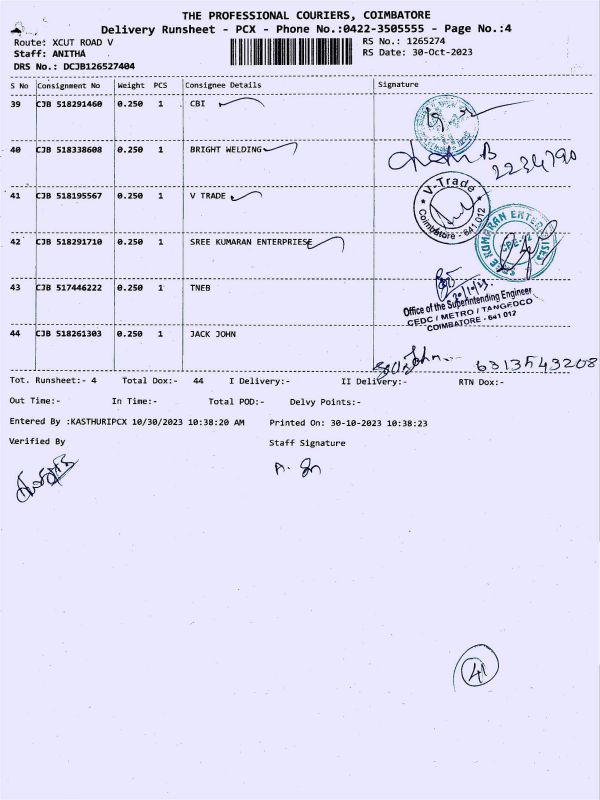 THE PROFESSIONAL COURIERS, COIMBATORE
Delivery Runsheet - PCX - Phone No.:0422-3505555 - Page No.:4
Route: XCUT ROAD V RS No.: 1265274
Staff: ANITHA RS Date: 30-Oct-2023
DRS No.: DCJB126527404
S No Consignment No Weight PCS Consignee Details Signature
39 CJB 518291460 0.250 1 CBI
40 CJB 518338608 0.250 1 BRIGHT WELDING
2234790
41 CJB 518195567 0.250 1 V TRADE
V-Trade
Coimbatore - 641 012
42 CJB 518291710 0.250 1 SREE KUMARAN ENTERPRIESE
KUMARAN ENTERPRISES
CBE-12
43 CJB 517446222 0.250 1 TNEB
Office of the Superintending Engineer
CEDC / METRO / TANGEDCO
COIMBATORE - 641 012
44 CJB 518261303 0.250 1 JACK JOHN
John
6313543208
Tot. Runsheet:- 4 Total Dox:- 44 I Delivery:- II Delivery:- RTN Dox:-
Out Time:- In Time:- Total POD:- Delvy Points:-
Entered By :KASTHURIPCX 10/30/2023 10:38:20 AM Printed On: 30-10-2023 10:38:23
Verified By Staff Signature
41